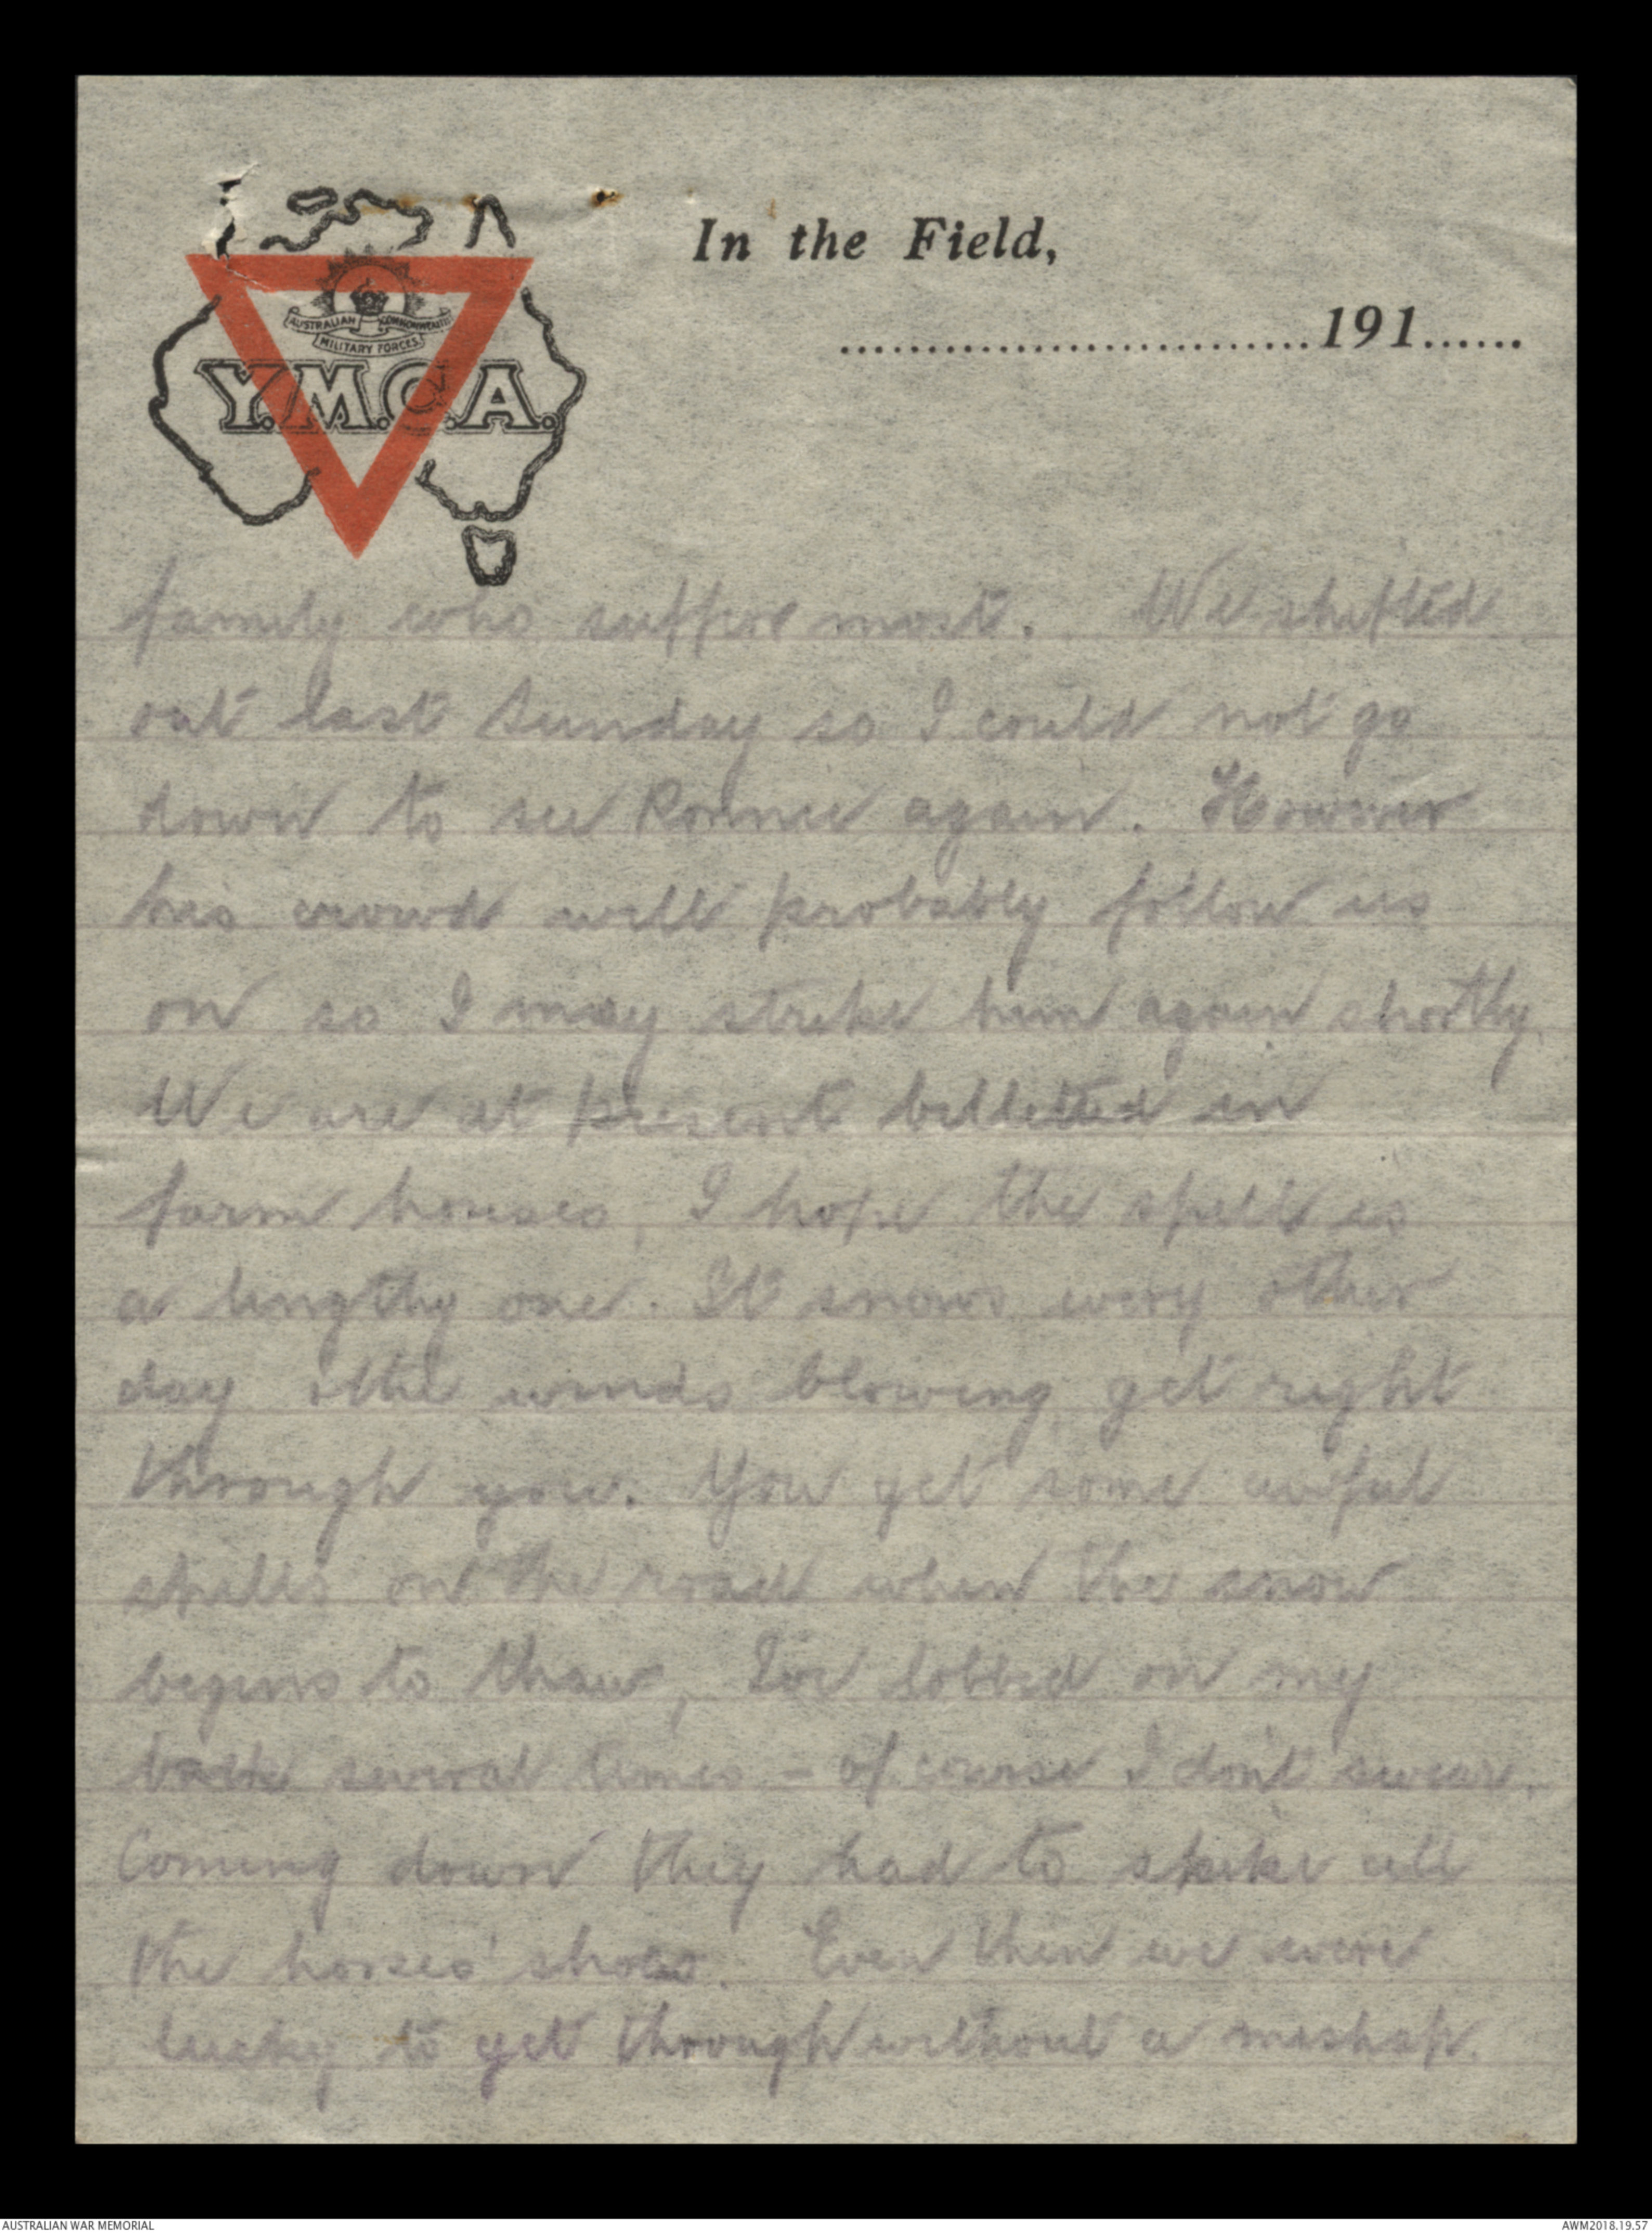 In the Field,
191
AUSTRALIAN COMMONWEALTH
MILITARY FORCES
Y.M.C.A.
family who suffer most. We shifted
out last Sunday so I could not go
down to see Ronnie again. However
his crowd will probably follow us
on so I may strike him again shortly.
We are at present billetted in
farm houses, I hope the spell is
a lengthy one. It snows every other
day & the winds blowing get right
through you. You get some awful
spills on the road when the snow
begins to thaw, I've lobbed on my
back several times - of course I don't swear.
Coming down they had to spike all
the horses' shoes. Even then we were
lucky to get through without a mishap.
AUSTRALIAN WAR MEMORIAL
AWM2018.19.57